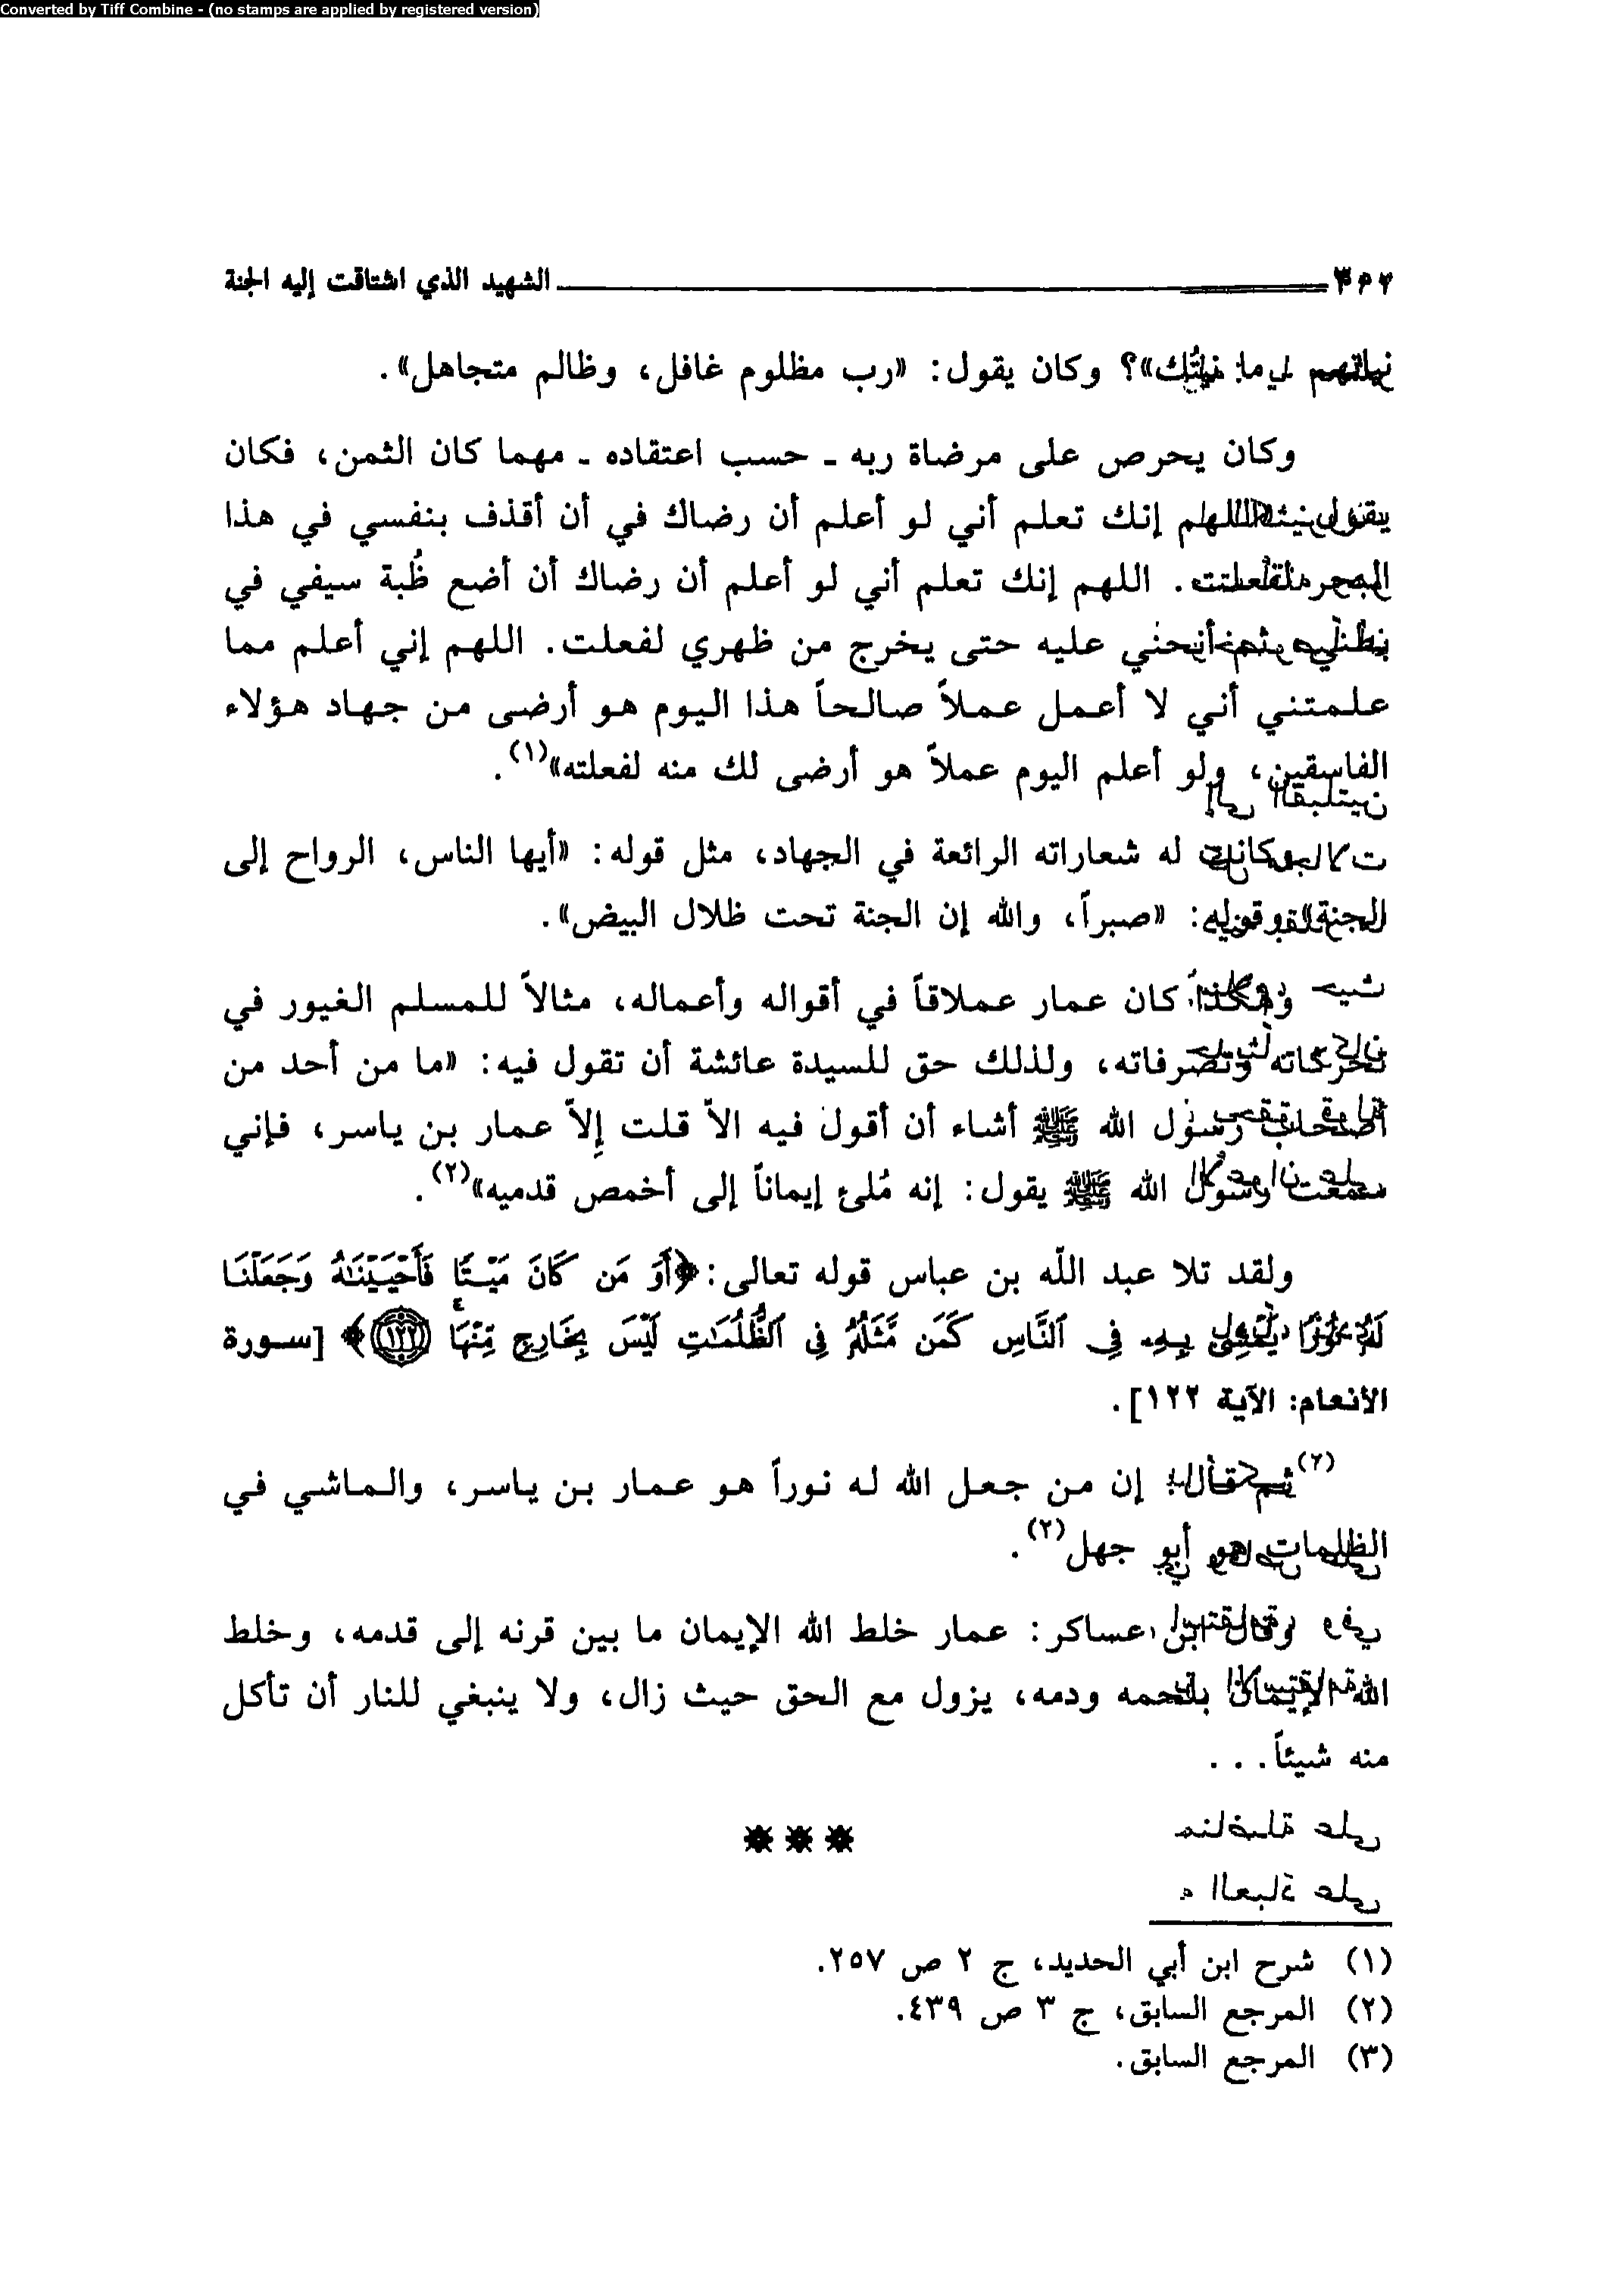 Converted by Tiff Combine - (no stamps are applied by registered version)
الشهيد الذي اشتاقت إليه الجنة
وكان يقول: «رب مظلوم غافل، وظالم متجاهل».
وكان يحرص على مرضاة ربه ـ حسب اعتقاده ـ مهما كان الثمن، فكان
يقول: «اللهم إنك تعلم أني لو أعلم أن رضاك في أن أقذف بنفسي في هذا
البحر لفعلت. اللهم إنك تعلم أني لو أعلم أن رضاك أن أضع ظُبة سيفي في
بطني ثم أنحني عليه حتى يخرج من ظهري لفعلت. اللهم إني أعلم مما
علمتني أني لا أعمل عملاً صالحاً هذا اليوم هو أرضى من جهاد هؤلاء
الفاسقين، ولو أعلم اليوم عملاً هو أرضى لك منه لفعلته»(١).
وكانت له شعاراته الرائعة في الجهاد، مثل قوله: «أيها الناس، الرواح إلى
الجنة» وقوله: «صبراً، والله إن الجنة تحت ظلال البيض».
وهكذا كان عمار عملاقاً في أقواله وأعماله، مثالاً للمسلم الغيور في
تحركاته وتصرفاته، ولذلك حق للسيدة عائشة أن تقول فيه: «ما من أحد من
أصحاب رسول الله ﷺ أشاء أن أقول فيه الاّ قلت إلاّ عمار بن ياسر، فإني
سمعت رسول الله ﷺ يقول: إنه مُلئ إيماناً إلى أخمص قدميه»(٢).
ولقد تلا عبد اللّه بن عباس قوله تعالى: ﴿أَوَ مَن كَانَ مَيْتًا فَأَحْيَيْنَاهُ وَجَعَلْنَا
لَهُ نُورًا يَمْشِي بِهِ فِي ٱلنَّاسِ كَمَن مَّثَلُهُ فِي ٱلظُّلُمَاتِ لَيْسَ بِخَارِجٍ مِّنْهَا ١٢٢﴾ [سورة
الأنعام: الآية ١٢٢].
ثم قال: إن من جعل الله له نوراً هو عمار بن ياسر، والماشي في
الظلمات هو أبو جهل(٢).
وقال ابن عساكر: عمار خلط الله الإيمان ما بين قرنه إلى قدمه، وخلط
الله الإيمان بلحمه ودمه، يزول مع الحق حيث زال، ولا ينبغي للنار أن تأكل
منه شيئاً...
(١) شرح ابن أبي الحديد، ج ٢ ص ٢٥٧.
(٢) المرجع السابق، ج ٣ ص ٤٣٩.
(٣) المرجع السابق.